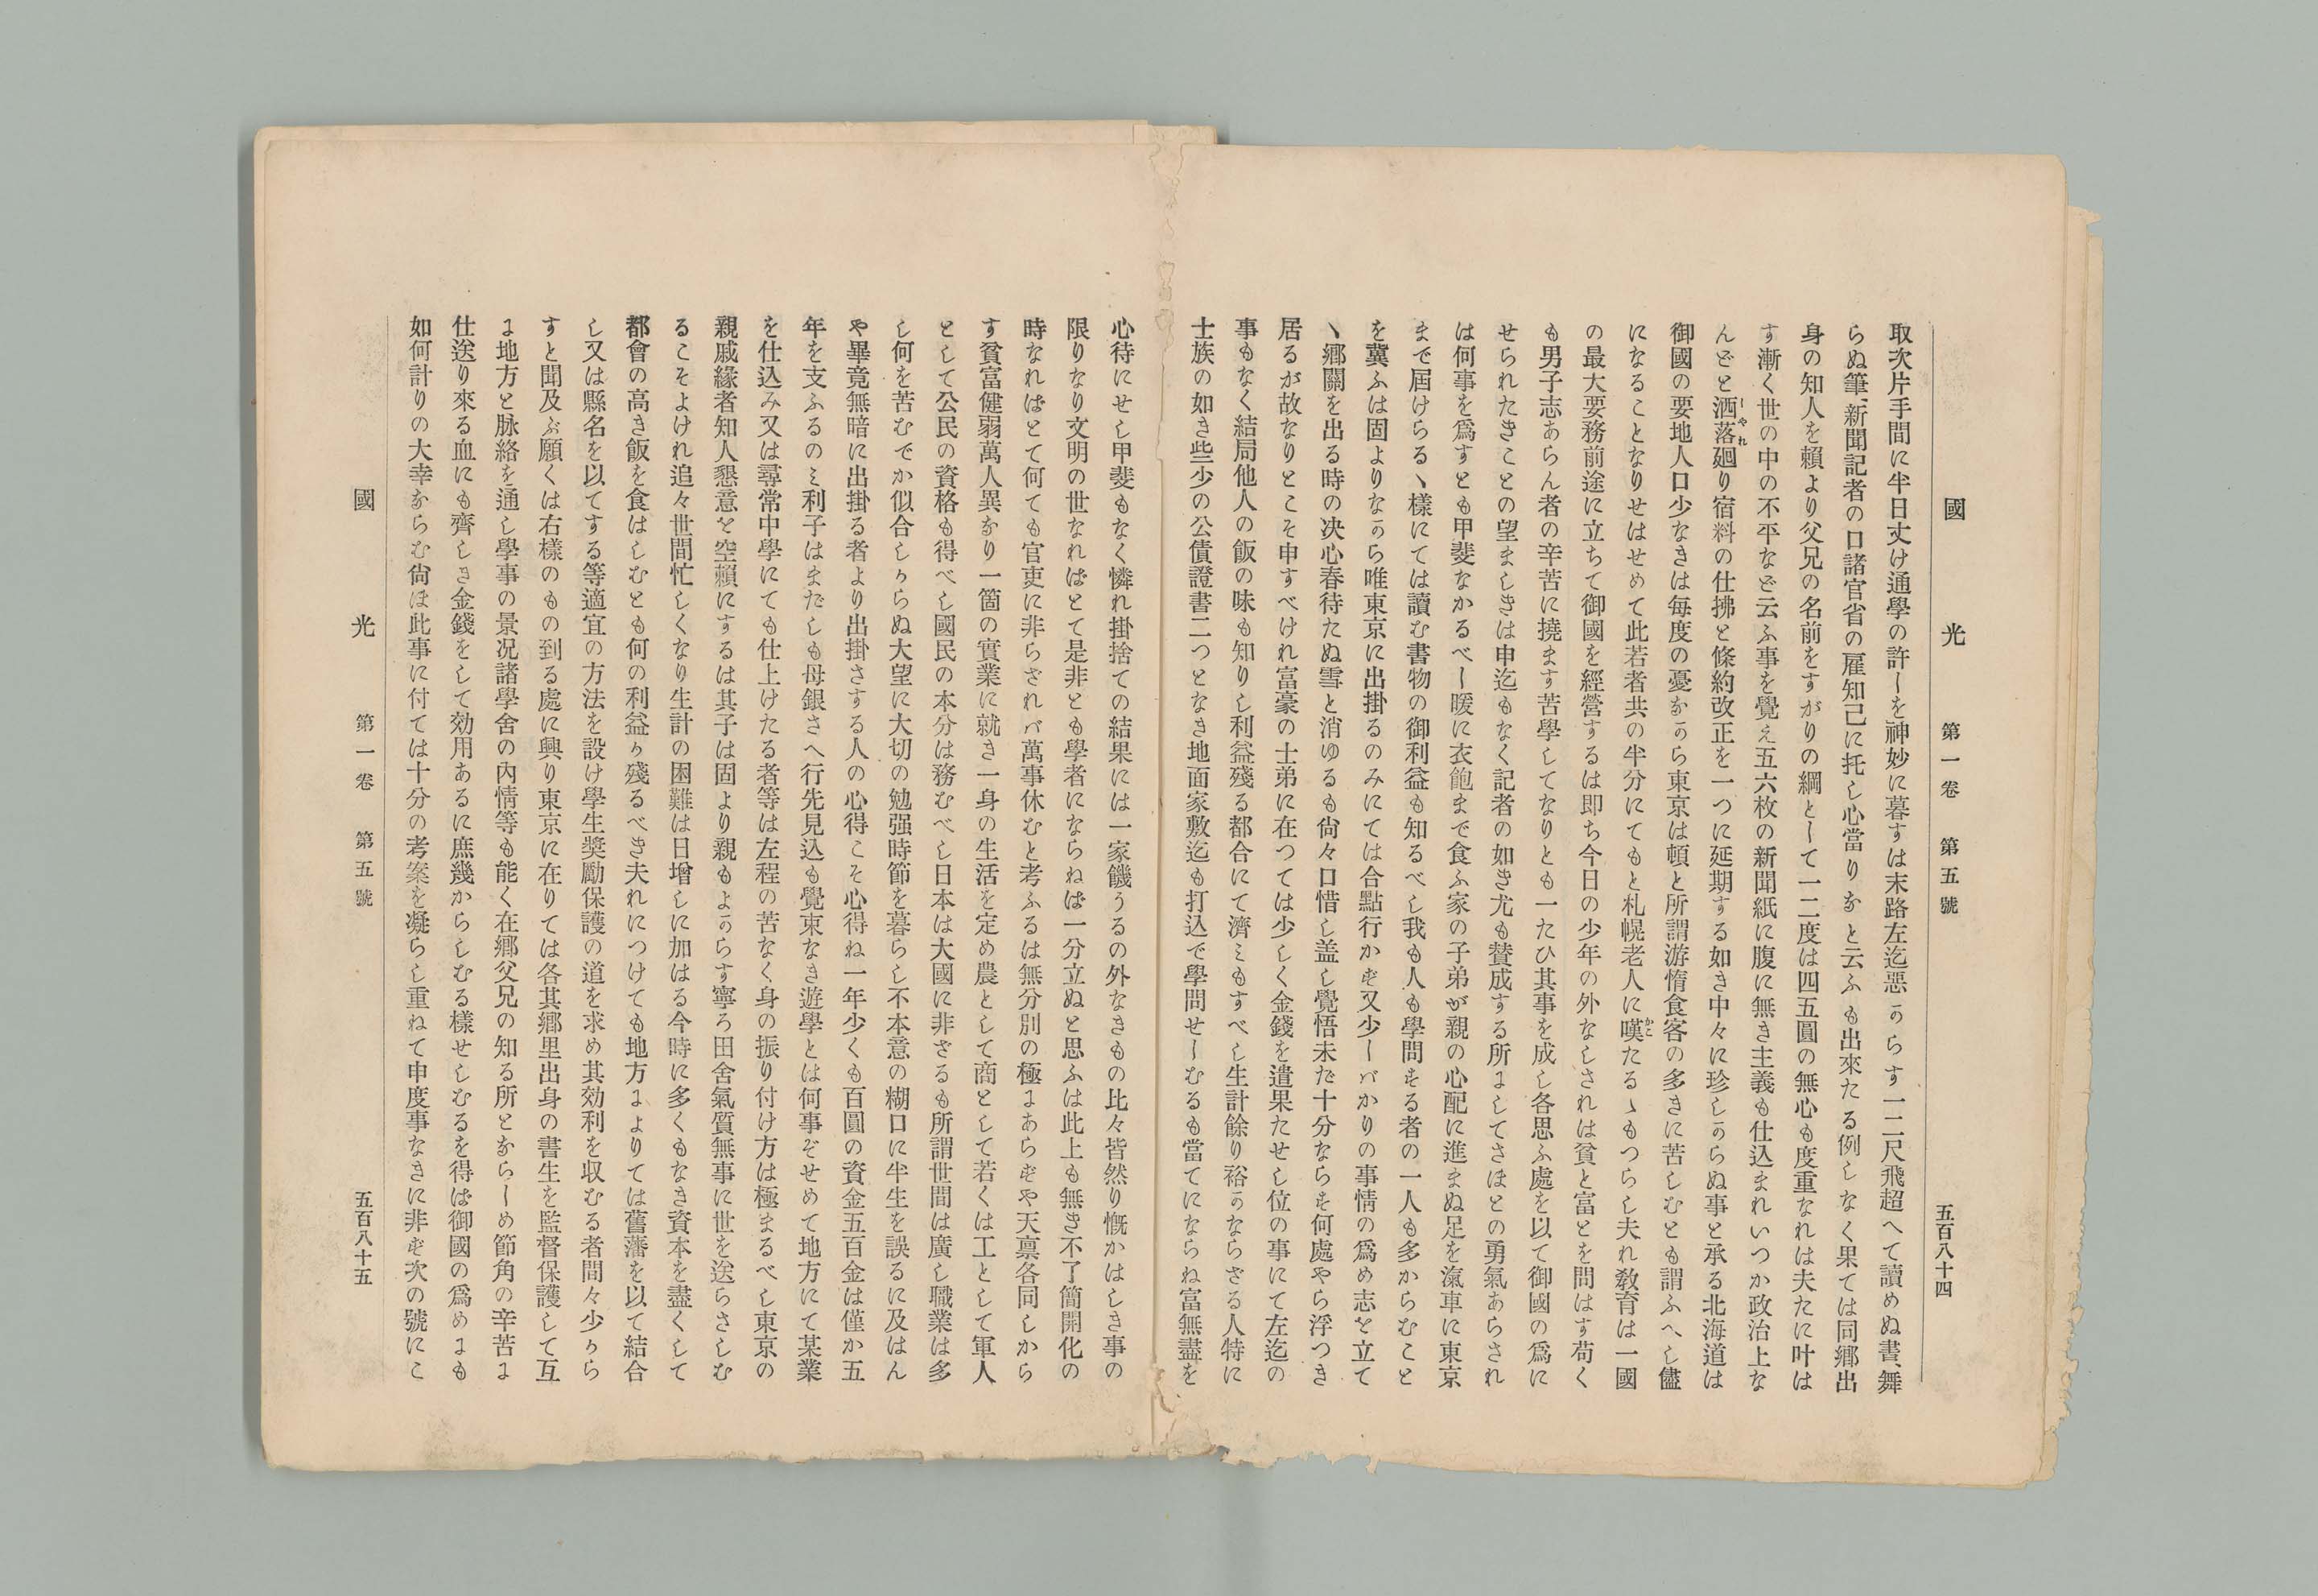 國光 第一卷 第五號 五百八十四
取次片手間に半日丈け通學の許しを神妙に暮すは末路左迄惡からす一二尺飛超へて讀めぬ書、舞
らぬ筆、新聞記者の口諸官省の雇知己に托し心當りなと云ふも出來たる例しなく果ては同郷出
身の知人を賴より父兄の名前をすがりの綱として一二度は四五圓の無心も度重なれは夫たに叶は
す漸く世の中の不平など云ふ事を覺え五六枚の新聞紙に腹に無き主義も仕込まれいつか政治上な
んどと洒落廻り宿料の仕拂と條約改正を一つに延期する如き中々に珍しからぬ事と承る北海道は
御國の要地人口少なきは每度の憂ながら東京は頓と所謂游惰食客の多きに苦しむとも謂ふへし儘
になることなりせはせめて此若者共の半分にてもと札幌老人に嘆たるゝもつらし夫れ敎育は一國
の最大要務前途に立ちて御國を經營するは即ち今日の少年の外なしされは貧と富とを問はす苟く
も男子志あらん者の辛苦に撓ます苦學してなりとも一たひ其事を成し各思ふ處を以て御國の爲に
せられたきことの望ましきは申迄もなく記者の如き尤も賛成する所にしてさほとの勇氣あらされ
は何事を爲すとも甲斐なかるべし暖に衣飽まで食ふ家の子弟が親の心配に進まぬ足を滊車に東京
まで屆けらるゝ樣にては讀む書物の御利益も知るべし我も人も學問する者の一人も多からむこと
を冀ふは固よりなから唯東京に出掛るのみにては合點行かず又少しバかりの事情の爲め志を立て
ゝ郷關を出る時の决心春待たぬ雪と消ゆるも尙々口惜し盖し覺悟未だ十分ならず何處やら浮つき
居るが故なりとこそ申すべけれ富豪の士弟に在つては少しく金錢を遣果たせし位の事にて左迄の
事もなく結局他人の飯の味も知りし利益殘る都合にて濟ミもすべし生計餘り裕かならさる人特に
士族の如き些少の公債證書二つとなき地面家敷迄も打込で學問せしむるも當てにならね富無盡を
心待にせし甲斐もなく憐れ掛捨ての結果には一家饑うるの外なきもの比々皆然り慨かはしき事の
限りなり文明の世なればとて是非とも學者にならねば一分立ぬと思ふは此上も無き不了簡開化の
時なればとて何ても官吏に非らされバ萬事休むと考ふるは無分別の極にあらずや天禀各同しから
す貧富健弱萬人異なり一箇の實業に就き一身の生活を定め農として商として若くは工として軍人
として公民の資格も得べし國民の本分は務むべし日本は大國に非ざるも所謂世間は廣し職業は多
し何を苦むでか似合しからぬ大望に大切の勉强時節を暮らし不本意の糊口に半生を誤るに及はん
や畢竟無暗に出掛る者より出掛さする人の心得こそ心得ね一年少くも百圓の資金五百金は僅か五
年を支ふるのミ利子はまだしも母銀さへ行先見込も覺束なき遊學とは何事ぞせめて地方にて某業
を仕込み又は尋常中學にても仕上けたる者等は左程の苦なく身の振り付け方は極まるべし東京の
親戚緣者知人懇意を空賴にするは其子は固より親もよからす寧ろ田舍氣質無事に世を送らさしむ
るこそよけれ追々世間忙しくなり生計の困難は日增しに加はる今時に多くもなき資本を盡くして
都會の高き飯を食はしむとも何の利益か殘るべき夫れにつけても地方によりては舊藩を以て結合
し又は縣名を以てする等適宜の方法を設け學生奬勵保護の道を求め其効利を収むる者間々少から
すと聞及ぶ願くは右樣のもの到る處に興り東京に在りては各其郷里出身の書生を監督保護して互
に地方と脉絡を通し學事の景况諸學舍の內情等も能く在郷父兄の知る所とならしめ節角の辛苦に
仕送り來る血にも齊しき金錢をして効用あるに庶幾からしむる樣せしむるを得ば御國の爲めにも
如何計りの大幸ならむ尙ほ此事に付ては十分の考案を凝らし重ねて申度事なきに非ず次の號にこ
國光 第一卷 第五號 五百八十五